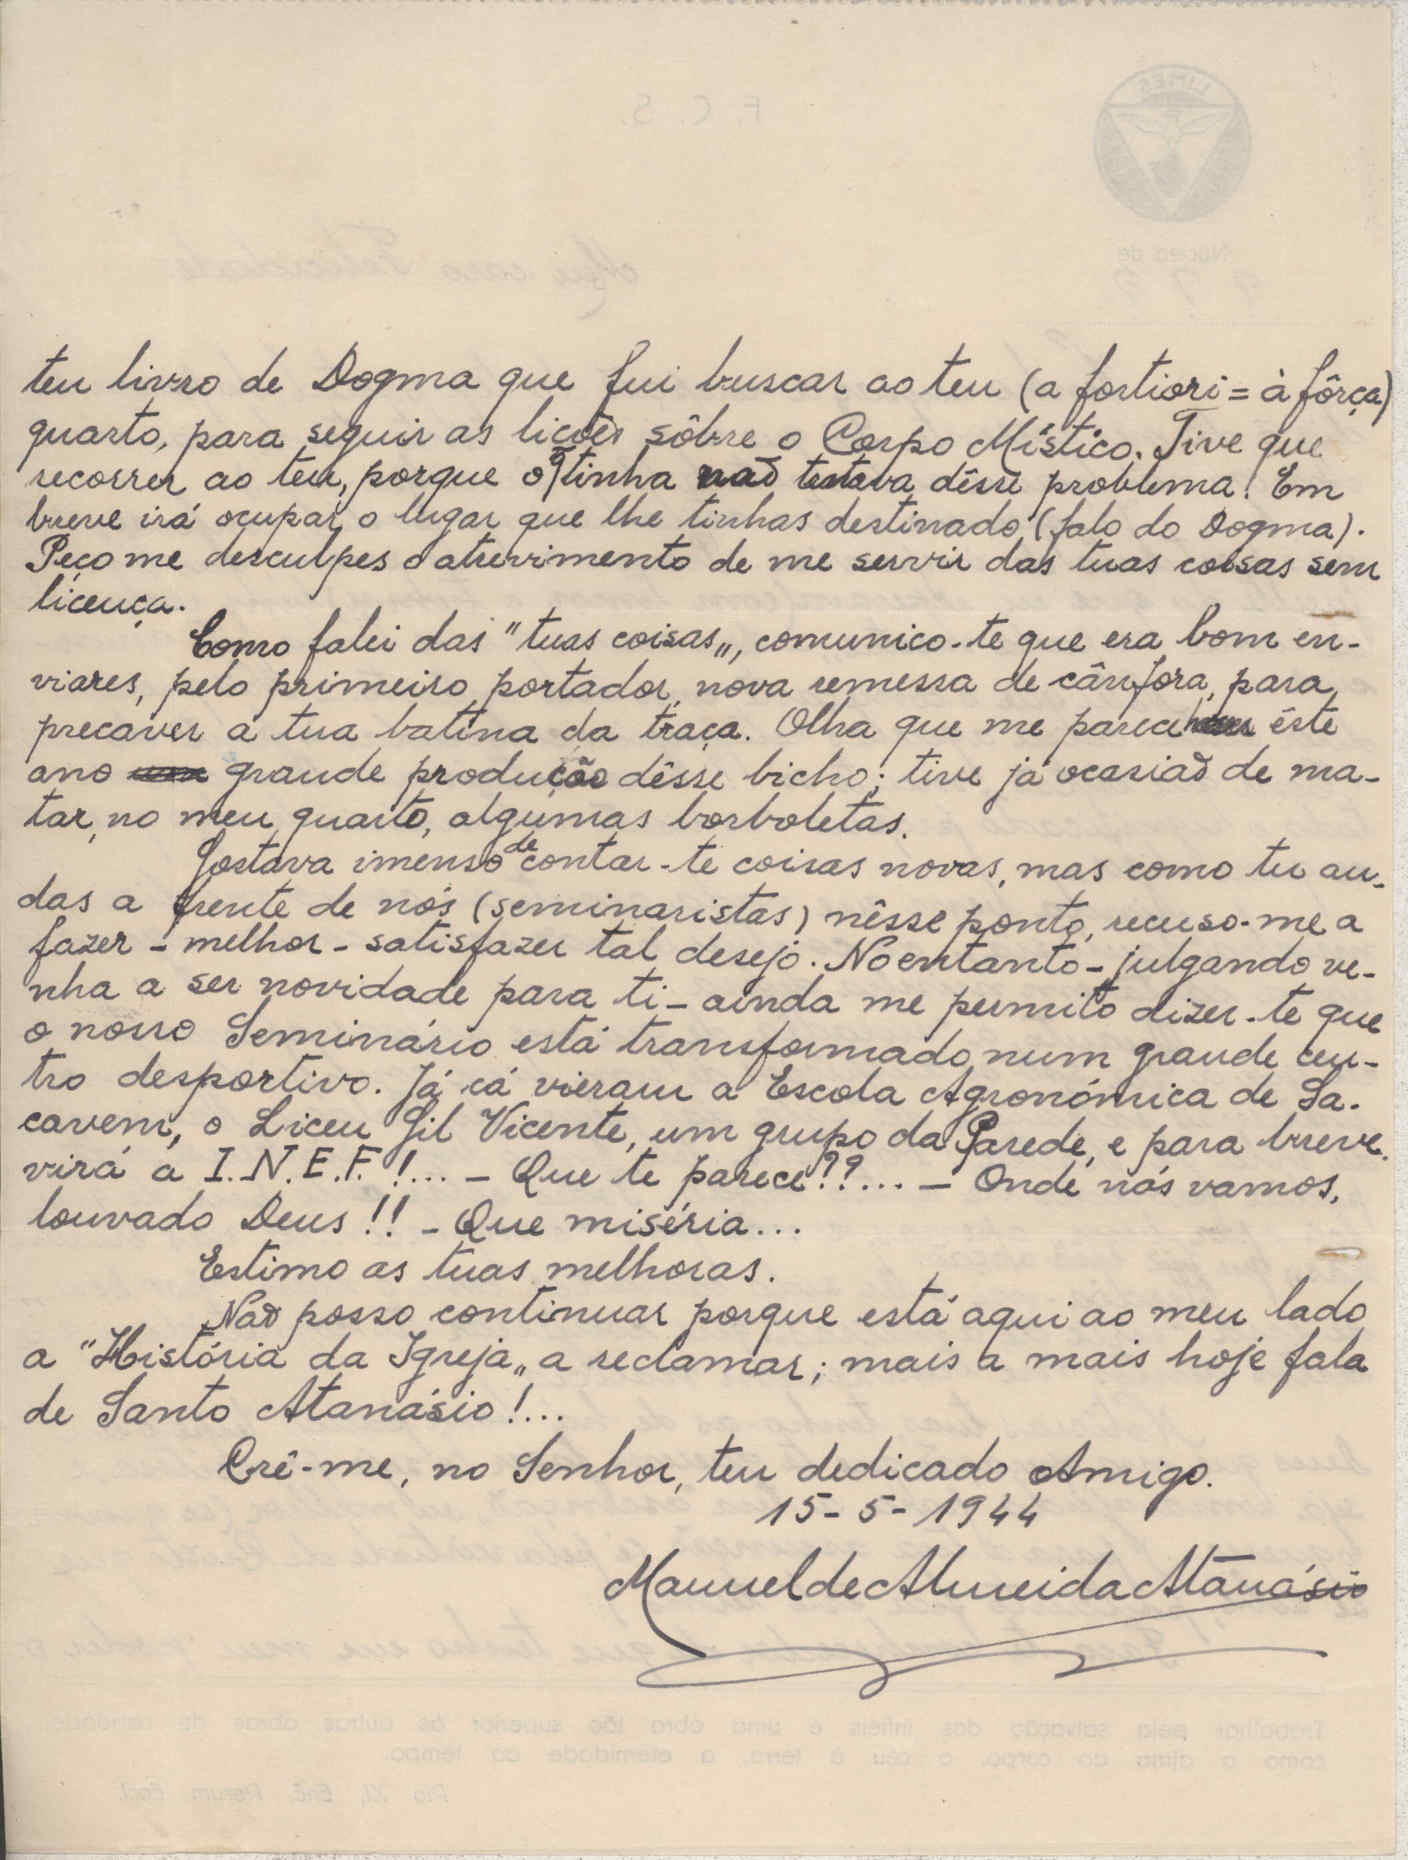 teu livro de Dogma que fui buscar ao teu (a fortiori = à fôrça)
quarto, para seguir as lições sôbre o Corpo Místico. Tive que
recorrer ao teu, porque o q tinha não tratava dêsse problema! Em
breve irá ocupar o lugar que lhe tinhas destinado (falo do Dogma).
Peço me desculpes o atrevimento de me servir das tuas coisas sem
licença.
Como falei das "tuas coisas", comunico-te que era bom en-
viares, pelo primeiro portador, nova remessa de cânfora, para
precaver a tua batina da traça. Olha que me parece haver êste
ano grande produção dêsse bicho; tive já ocasião de ma-
tar, no meu quarto, algumas borboletas.
Gostava imenso de contar-te coisas novas, mas como tu an-
das a frente de nós (seminaristas) nêsse ponto, recuso-me a
fazer - melhor - satisfazer tal desejo. No entanto - julgando ve-
nha a ser novidade para ti - ainda me permito dizer-te que
o nosso Seminário está transformado num grande cen-
tro desportivo. Já cá vieram a Escola Agronómica de Sa-
cavem, o Liceu Gil Vicente, um grupo da Parede, e para breve
virá a I.N.E.F.!... - Que te parece??... - Onde nós vamos,
louvado Deus!! - Que miséria...
Estimo as tuas melhoras.
Não posso continuar porque está aqui ao meu lado
a "História da Igreja" a reclamar; mais a mais hoje fala
de Santo Atanásio!...
Crê-me, no Senhor, teu dedicado Amigo.
15-5-1944
Manuel de Almeida Atanásio